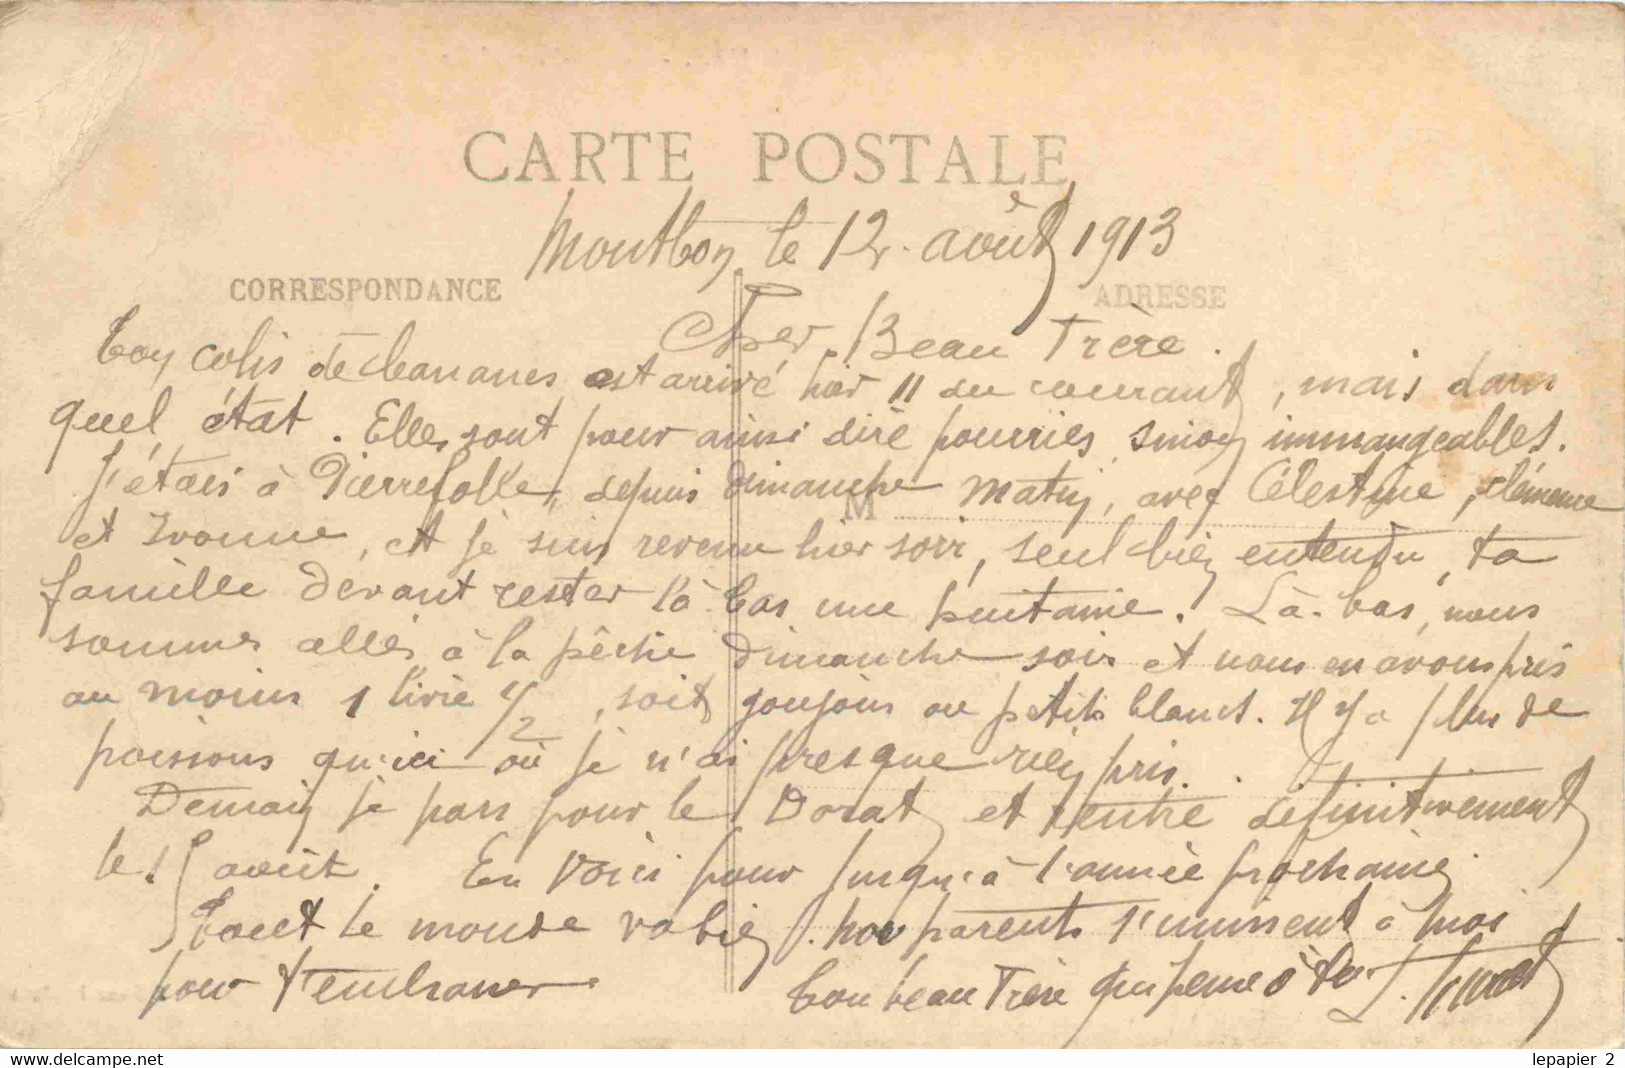 CARTE POSTALE
Montbon, le 12 août 1913
CORRESPONDANCE
ADRESSE
Cher Beau Frère.
Ton colis de bananes est arrivé hier 11 du courant, mais dans
quel état. Elles sont pour ainsi dire pourries sinon immangeables.
J'étais à Pierrefolle, depuis dimanche matin, avec Célestine, Clémence
M
et Ivonne, et je suis revenu hier soir, seul bien entendu, ta
famille devant rester là-bas une huitaine. Là-bas, nous
sommes allés à la pêche dimanche soir et nous en avons pris
au moins 1 livre 1/2, soit goujons ou petits blancs. Il y a plus de
poissons qu'ici où je n'ai presque rien pris.
Demain je pars pour le Dorat et rentre définitivement
le 15 août. En voici pour jusqu'à l'année prochaine.
Tout le monde va bien. Nos parents s'unissent à moi
pour t'embrasser.
Ton beau Frère qui pense à toi
lepapier_2